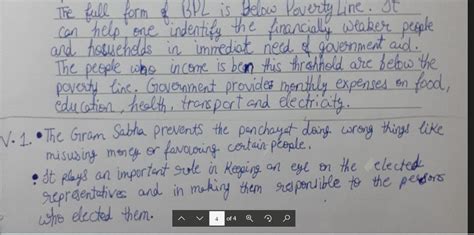 The full form of BPL is Below Poverty Line. It
can help one indentify the financially weaker people
and households in immediate need of government aid.
The people who income is ben this throhold are below the
poverty line. Government provides monthly expenses on food,
education, health, transport and electricity.
V. 1. • The Gram Sabha prevents the panchayat doing wrong things like
misusing money or favouring certain people.
• It plays an important role in keeping an eye on the elected
representatives and in making them responsible to the persons
who elected them.
4 of 4